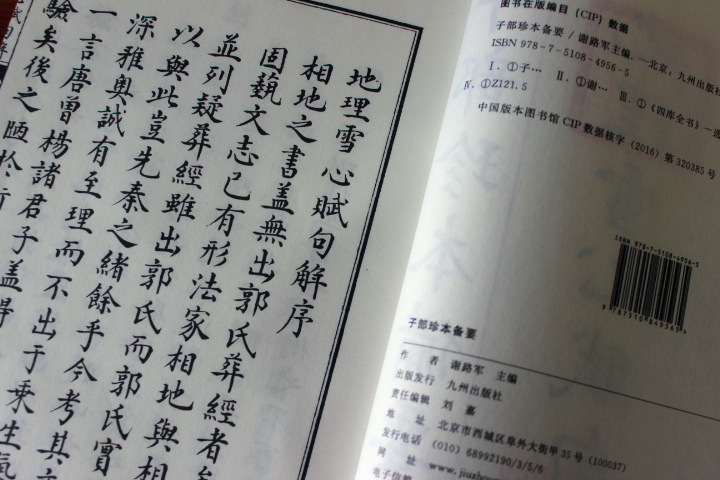 地理雪心賦句解序
相地之書盖無出郭氏葬經者
固藝文志已有形法家相地與相
並列疑葬經雖出郭氏而郭氏實
以與此豈先秦之緒餘乎今考其
深雅奥誠有至理而不出于乗生氣
一言唐曾楊諸君子盖得
驗矣後之陋於
图书在版编目（CIP）数据
子部珍本备要 / 谢路军主编. — 北京：九州出版社
ISBN 978-7-5108-4956-5
Ⅰ. ①子… Ⅱ. ①谢… Ⅲ. ①《四库全书》—
Ⅳ. ①Z121.5
中国版本图书馆 CIP 数据核字（2016）第 320385 号
珍本
ISBN 978-7-5108-4956-5
9787510849565
子部珍本备要
作 者 谢路军 主编
出版发行 九州出版社
责任编辑 刘 嘉
地 址 北京市西城区阜外大街甲 35 号（100037）
发行电话 (010) 68992190/3/5/6
网 址 www.jiuzhou
电子信箱